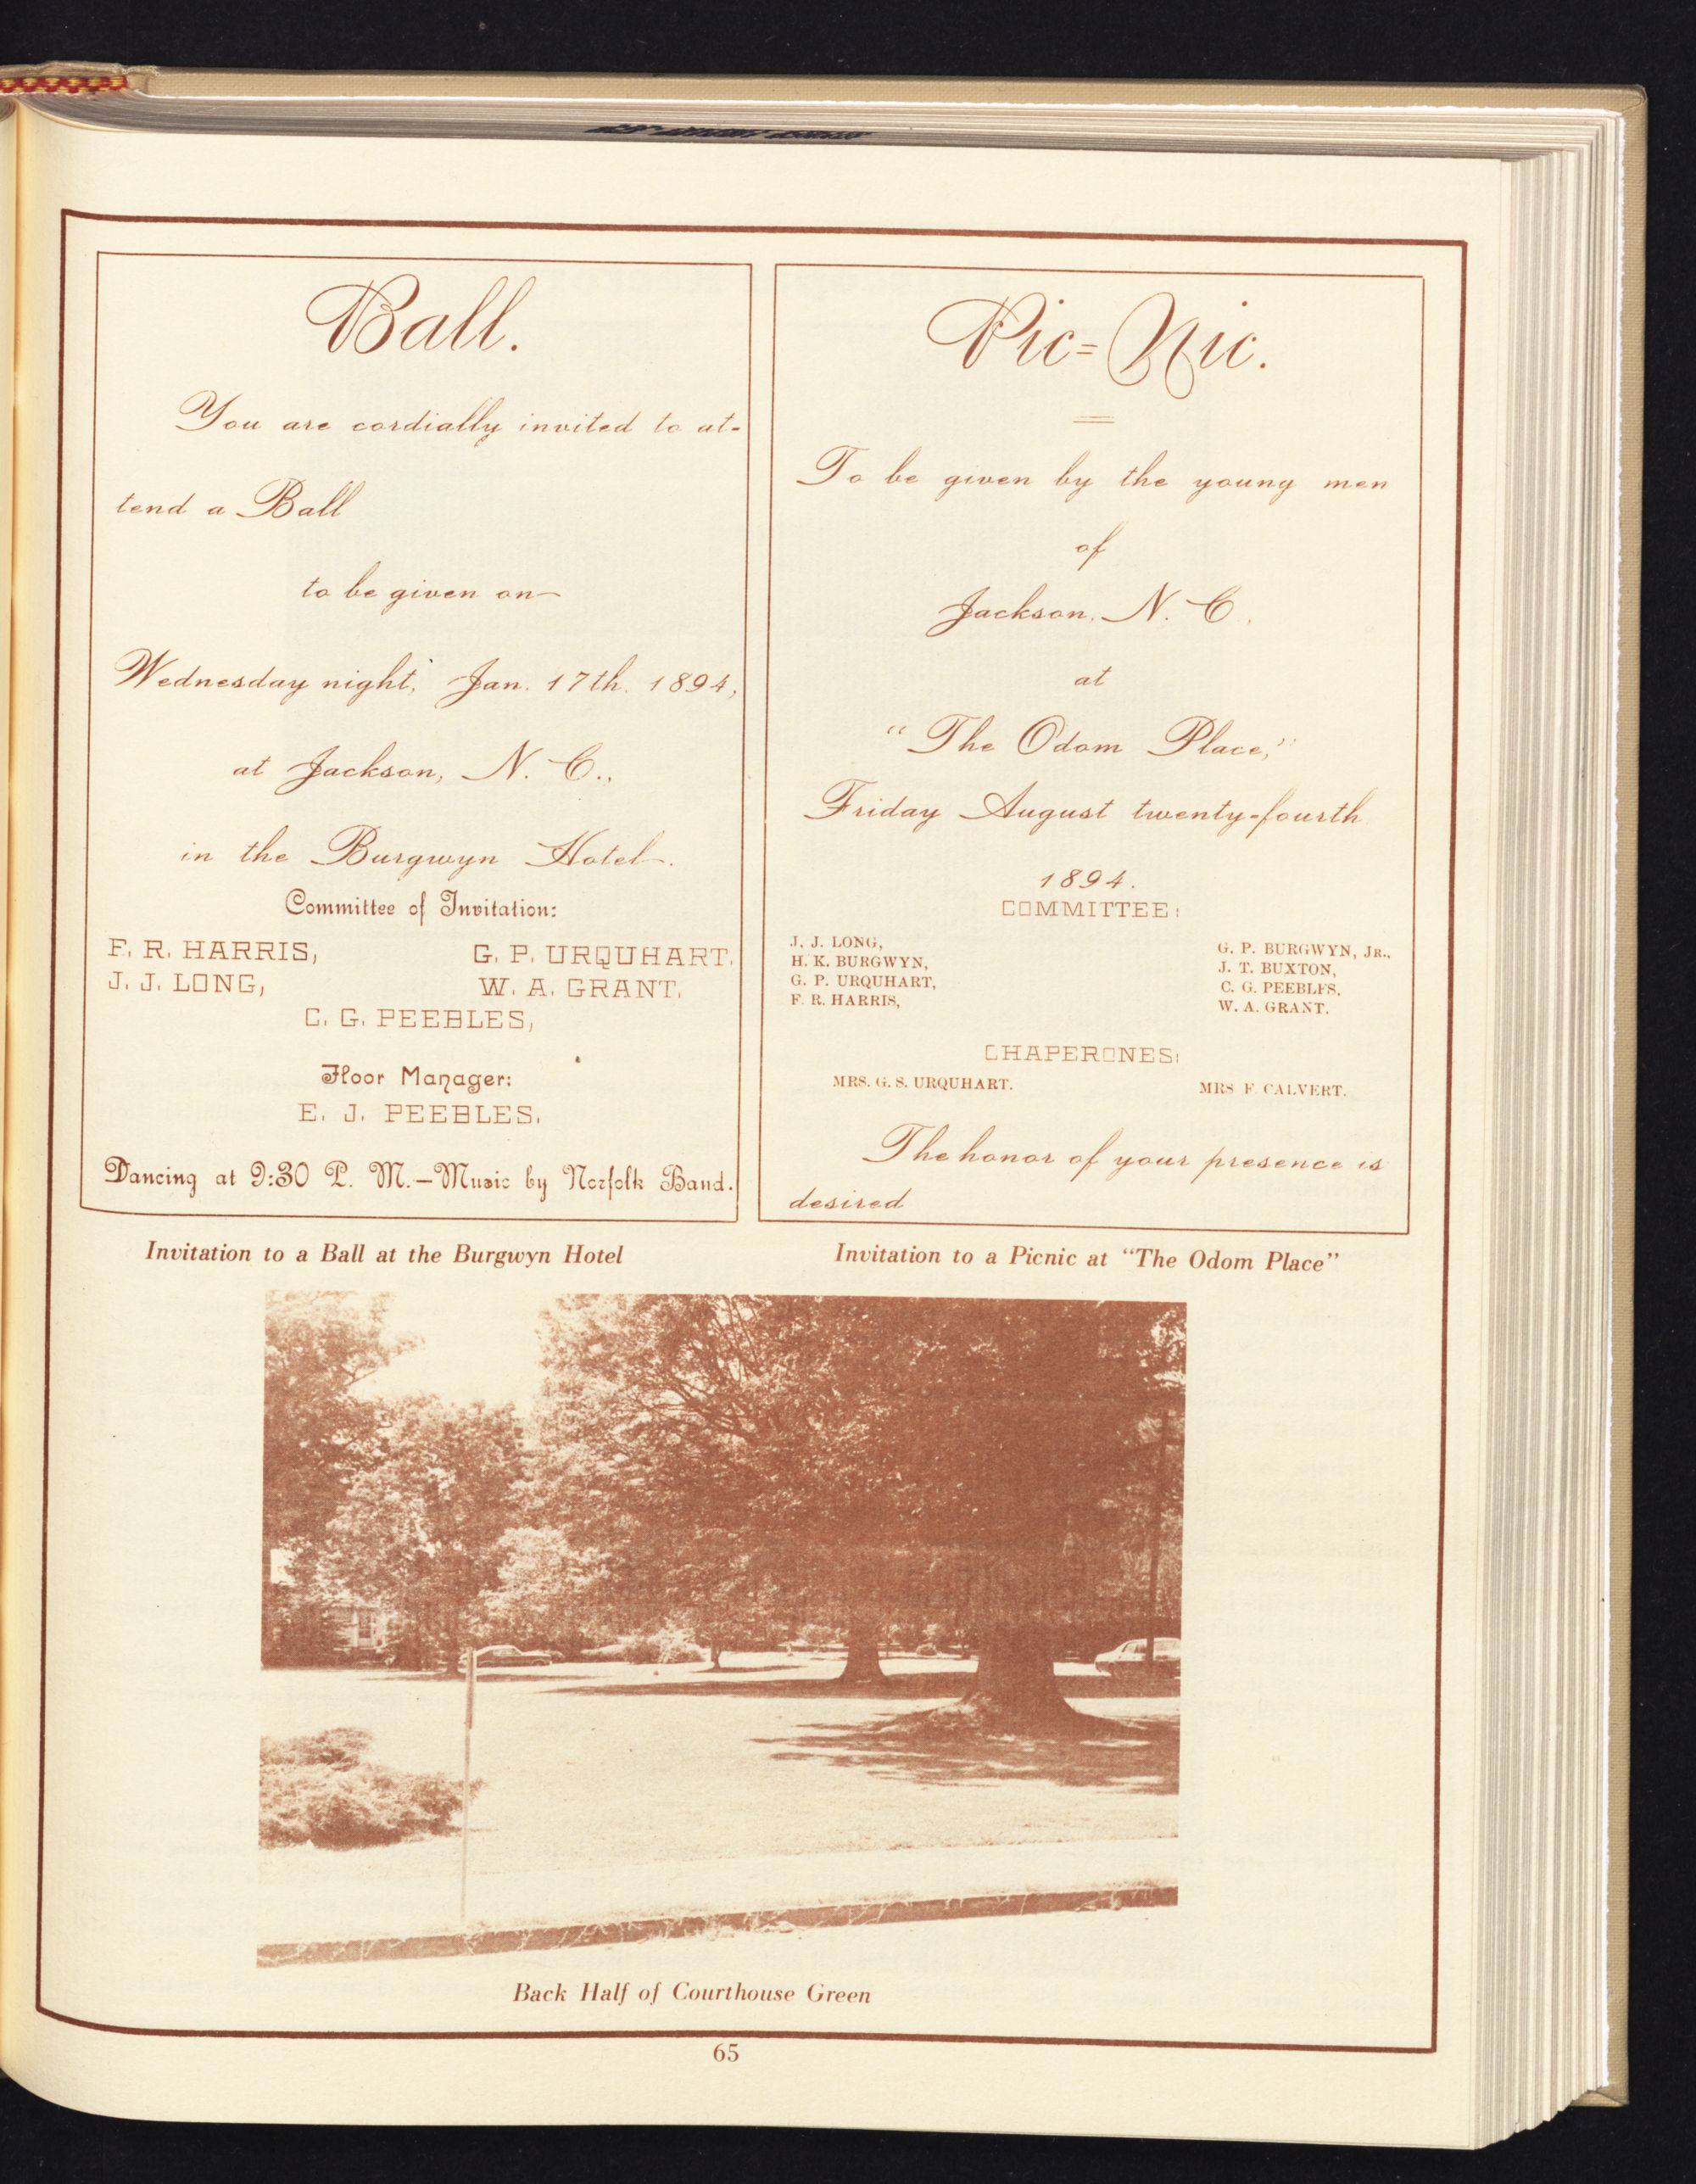 Ball.
You are cordially invited to at-
tend a Ball
to be given on
Wednesday night, Jan. 17th. 1894,
at Jackson, N. C.,
in the Burgwyn Hotel.
Committee of Invitation:
F. R. HARRIS, G. P. URQUHART.
J. J. LONG, W. A. GRANT.
C. G. PEEBLES,
Floor Manager:
E. J. PEEBLES.
Dancing at 9:30 P. M.—Music by Norfolk Band.
Invitation to a Ball at the Burgwyn Hotel
Pic=Nic.
To be given by the young men
of
Jackson, N. C.,
at
"The Odom Place,"
Friday August twenty-fourth
1894.
COMMITTEE:
J. J. LONG, G. P. BURGWYN, JR.,
H. K. BURGWYN, J. T. BUXTON,
G. P. URQUHART, C. G. PEEBLES,
F. R. HARRIS, W. A. GRANT.
CHAPERONES:
MRS. G. S. URQUHART. MRS F CALVERT.
The honor of your presence is
desired
Invitation to a Picnic at "The Odom Place"
Back Half of Courthouse Green
65